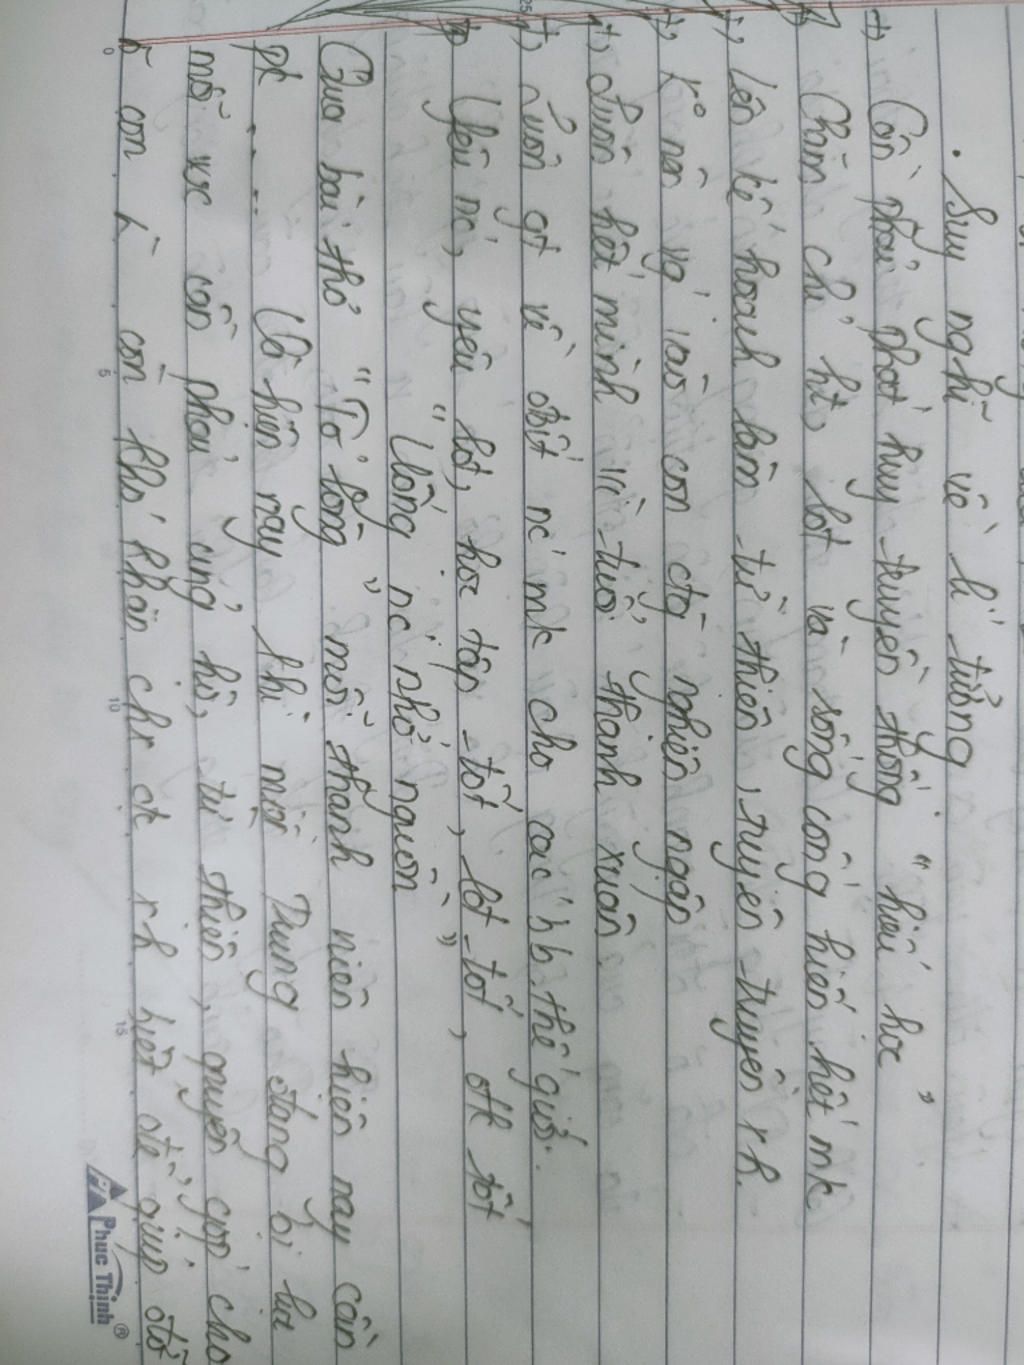 . Suy nghĩ về lí tưởng
+, Cần phải phát huy truyền thống " hiếu học "
Chăm chỉ ht, lđ và sống cống hiến hết mk
+, Lên kế hoạch làm từ thiện, tuyên truyền rh.
+, Ko nên va vào con đg nghiện ngập
+, Sườn hết mình vì tuổi thanh xuân.
+, Luôn gt về đất nc mk cho các b b thế giới.
Yêu nc, yêu lđ, học tập tốt, lđ tốt, đk tốt
" Uống nc nhớ nguồn "
Qua bài thơ " Tỏ lòng " mỗi thanh niên hiện nay cần
pt ..... Và hiện nay khi miền Trung đang bị lũ
mỗi vc cần phải ủng hộ, từ thiện, quyên góp cho
bà con ở còn khó khăn chr ck rh hết để giúp đỡ
0 5 10 15
25
Phuc Thinh®